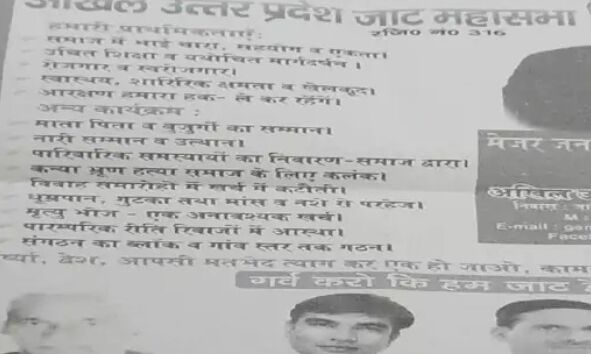 अखिल उत्तर प्रदेश जाट महासभा
रजि० नं० 316
हमारी प्राथमिकताएं:
समाज में भाई चारा, सहयोग व एकता।
उचित शिक्षा व यथोचित मार्गदर्शन।
रोजगार व स्वरोजगार।
स्वास्थय, शारिरिक क्षमता व खेलकूद।
आरक्षण हमारा हक- ले कर रहेंगे।
अन्य कार्यक्रम :
माता पिता व बुजुर्गो का सम्मान।
नारी सम्मान व उत्थान।
पारिवारिक समस्यायों का निवारण-समाज द्वारा।
कन्या भ्रूण हत्या समाज के लिए कलंक।
विवाह समारोहों में खर्च में कटौती।
धूम्रपान, गुटका तथा मांस व नशे से परहेज।
मृत्यु भोज - एक अनावश्यक खर्चा।
पारम्परिक रीति रिवाजों में आस्था।
संगठन का ब्लॉक व गांव स्तर तक गठन।
मेजर जन
अखिल
निवास :
M :
E-mail : gen
Face
देश, आपसी मतभेद त्याग कर एक हो जाओ,
गर्व करो कि हम जाट